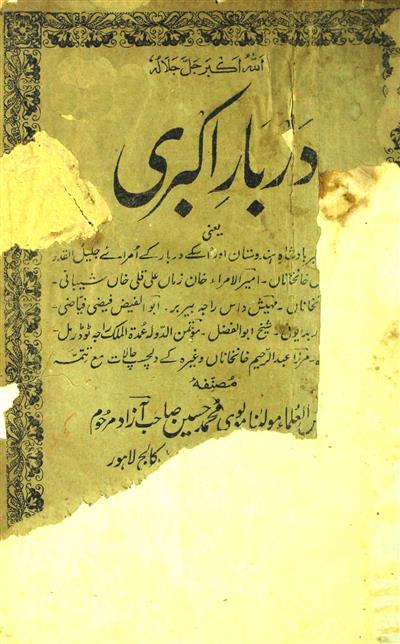 اللہ اکبر جل جلالہ
دربار اکبری
یعنی
بادشاہ ہندوستان اور اسکے دربار کے اُمرائے جلیل القدر
خانخاناں - امیر الامراء خان زماں علی قلی خاں شیبانی -
مہیش داس راجہ بیربر - ابو الفیض فیضی فیاضی -
شیخ ابو الفضل - مؤتمن الدولہ عمدۃ الملک راجہ ٹوڈرمل -
مرزا عبد الرحیم خانخاناں وغیرہ کے دلچسپ حالات مع تتمہ
مصنفہ
العلماء مولانا مولوی محمد حسین صاحب آزاد مرحوم
کالج لاہور